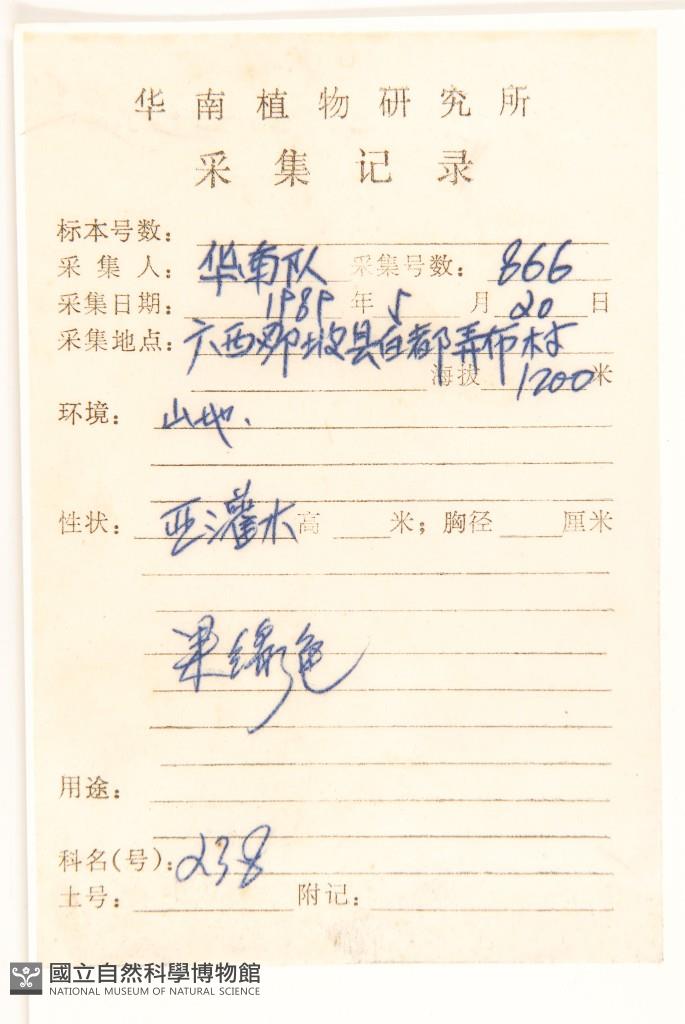 华南植物研究所
采集记录
标本号数:
采集人: 华南队 采集号数: 866
采集日期: 1989 年 5 月 20 日
采集地点: 广西那坡县百都弄布村
海拔 1200 米
环境: 山地.
性状: 亚灌木 高 米; 胸径 厘米
果绿色
用途:
科名(号): 238
土号: 附记:
國立自然科學博物館
NATIONAL MUSEUM OF NATURAL SCIENCE